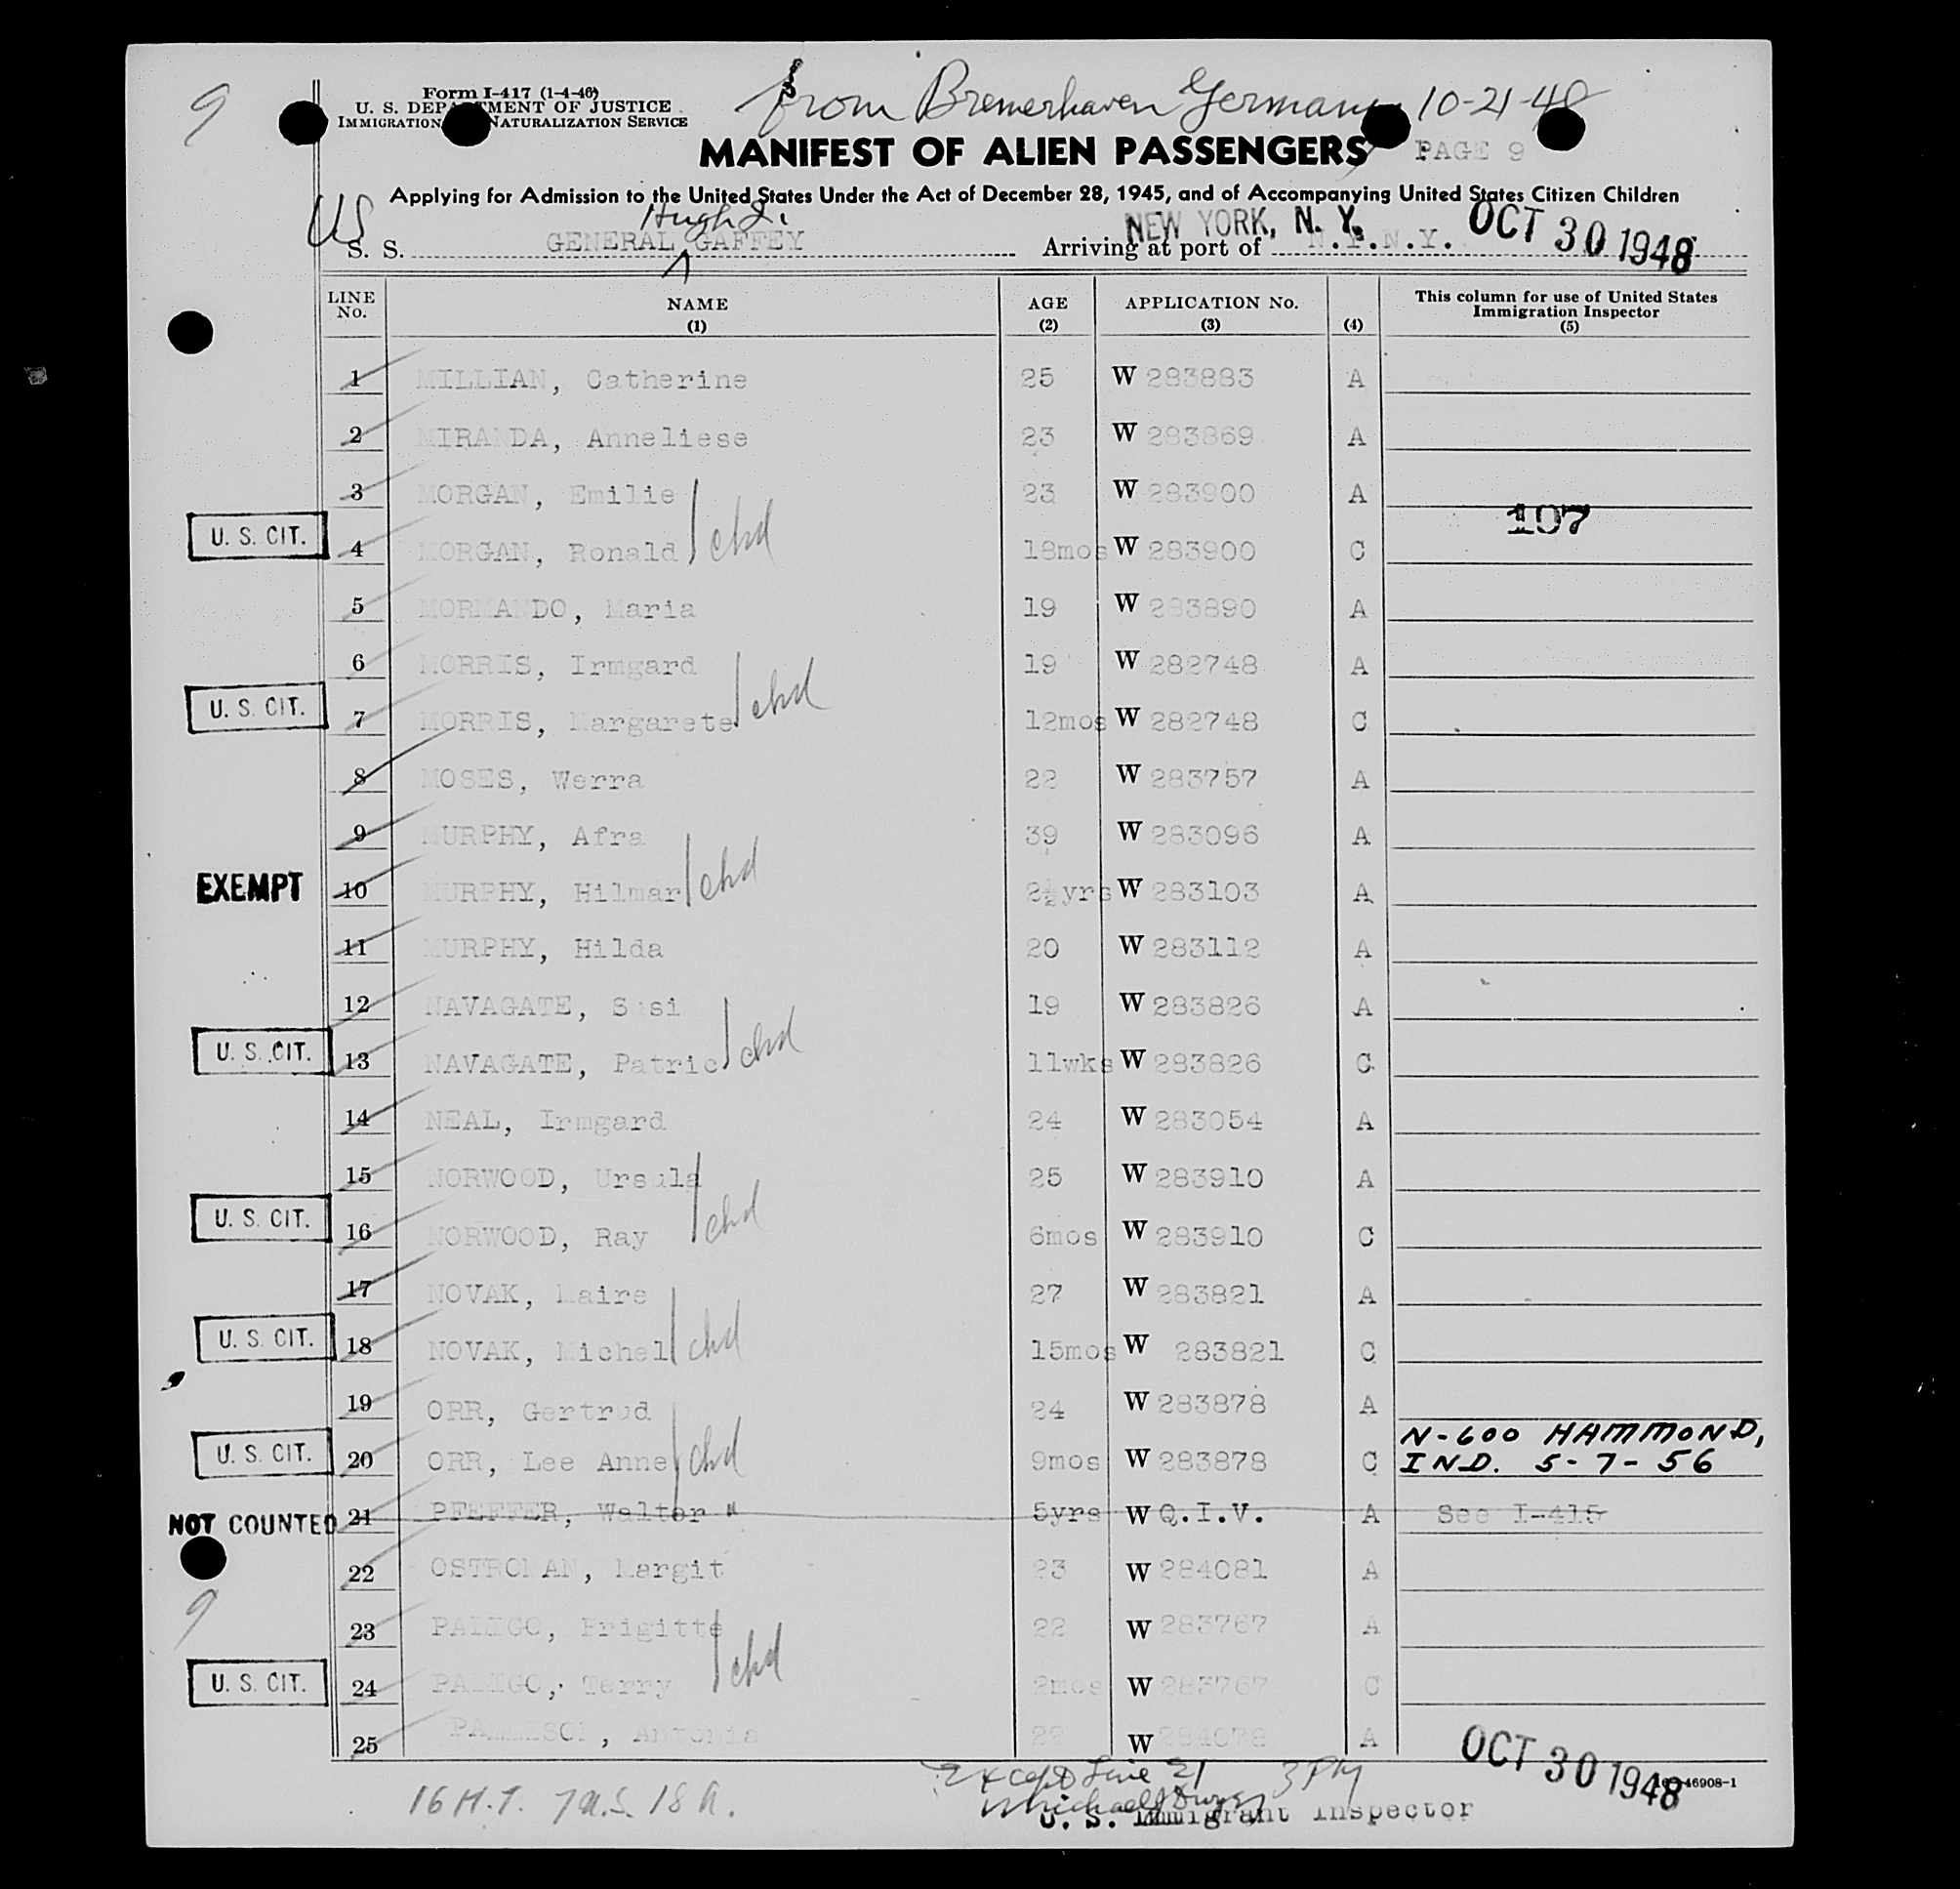 9
Form I-417 (1-4-46)
U. S. DEPARTMENT OF JUSTICE
IMMIGRATION NATURALIZATION SERVICE
from Bremerhaven Germany 10-21-48
MANIFEST OF ALIEN PASSENGERS PAGE 9
Applying for Admission to the United States Under the Act of December 28, 1945, and of Accompanying United States Citizen Children
US Hugh J. NEW YORK, N. Y. OCT 30 1948
S. S. GENERAL GAFFEY Arriving at port of N.Y.N.Y.
LINE No. NAME (1) AGE (2) APPLICATION No. (3) (4) This column for use of United States Immigration Inspector (5)
1 MILLIAN, Catherine 25 W 283883 A
2 MIRANDA, Anneliese 23 W 283869 A
3 MORGAN, Emilie 23 W 283900 A
107
U. S. CIT. 4 MORGAN, Ronald chd 18mos W 283900 C
5 MORMANDO, Maria 19 W 283890 A
6 MORRIS, Irmgard 19 W 282748 A
U. S. CIT. 7 MORRIS, Margarete chd 12mos W 282748 C
8 MOSES, Werra 22 W 283757 A
9 MURPHY, Afra 39 W 283096 A
EXEMPT 10 MURPHY, Hilmar chd 2½yrs W 283103 A
11 MURPHY, Hilda 20 W 283112 A
12 NAVAGATE, Susi 19 W 283826 A
U. S. CIT. 13 NAVAGATE, Patric chd 11wks W 283826 C
14 NEAL, Irmgard 24 W 283054 A
15 NORWOOD, Ursula 25 W 283910 A
U. S. CIT. 16 NORWOOD, Ray chd 6mos W 283910 C
17 NOVAK, Maire 27 W 283821 A
U. S. CIT. 18 NOVAK, Michel chd 15mos W 283821 C
19 ORR, Gertrud 24 W 283878 A
U. S. CIT. 20 ORR, Lee Anne chd 9mos W 283878 C N-600 HAMMOND,
IND. 5-7-56
NOT COUNTED 21 PFEFFER, Walter 5yrs W Q.I.V. A See I-415
22 OSTROMAN, Margit 23 W 284081 A
9
23 Brigitte 22 W 283767 A
U. S. CIT. 24 Terry chd 2mos W 283767 C
25 Antonia 22 W A
OCT 30 1948
Except Line 21 3 PM
-46908-1
16 H.T. 7 U.S. 18 A.
U. S. Immigrant Inspector